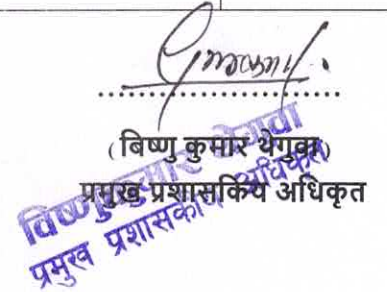 (बिष्णु कुमार थेगुवा)
प्रमुख प्रशासकिय अधिकृत
विष्णु कुमार थेगुवा
प्रमुख प्रशासकीय अधिकृत